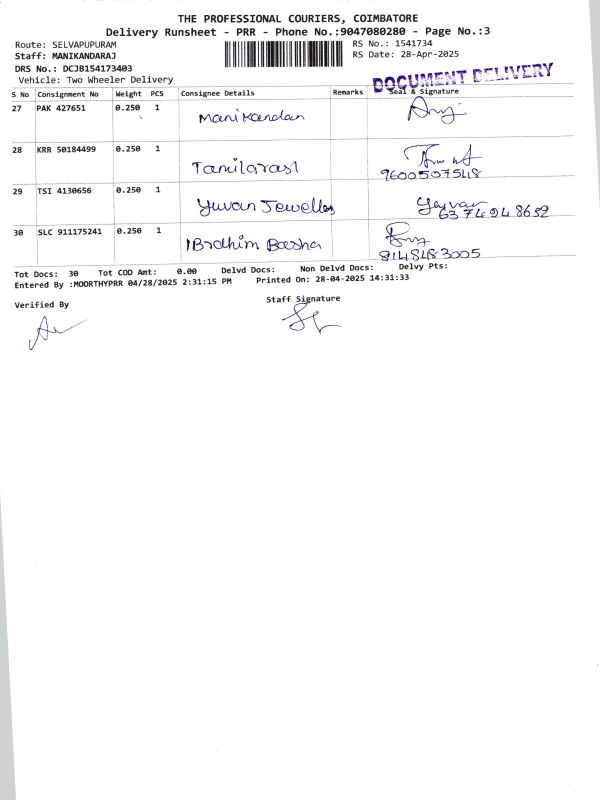 THE PROFESSIONAL COURIERS, COIMBATORE
Delivery Runsheet - PRR - Phone No.:9047080280 - Page No.:3
Route: SELVAPUPURAM
RS No.: 1541734
Staff: MANIKANDARAJ
RS Date: 28-Apr-2025
DRS No.: DCJB154173403
Vehicle: Two Wheeler Delivery
DOCUMENT DELIVERY
S No Consignment No Weight PCS Consignee Details Remarks Seal & Signature
27 PAK 427651 0.250 1 Manikandan
28 KRR 50184499 0.250 1 Tamilarasi
9600507548
29 TSI 4130656 0.250 1 Yuvan Jewelles Yuvan
6374948652
30 SLC 911175241 0.250 1 IBrahim Basha
8148483005
Tot Docs: 30 Tot COD Amt: 0.00 Delvd Docs: Non Delvd Docs: Delvy Pts:
Entered By :MOORTHYPRR 04/28/2025 2:31:15 PM Printed On: 28-04-2025 14:31:33
Verified By Staff Signature